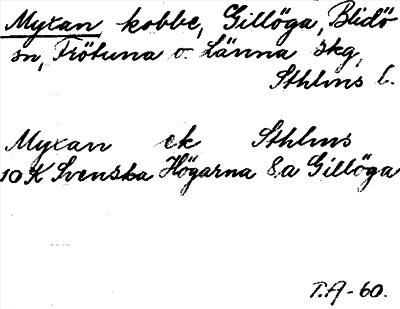 Myxan, kobbe, Gillöga, Blidö
sn, Frötuna o. Länna skg,
Sthlms l.
Myxan ek Sthlms
10K Svenska Högarna 8,a Gillöga
T.A-60.